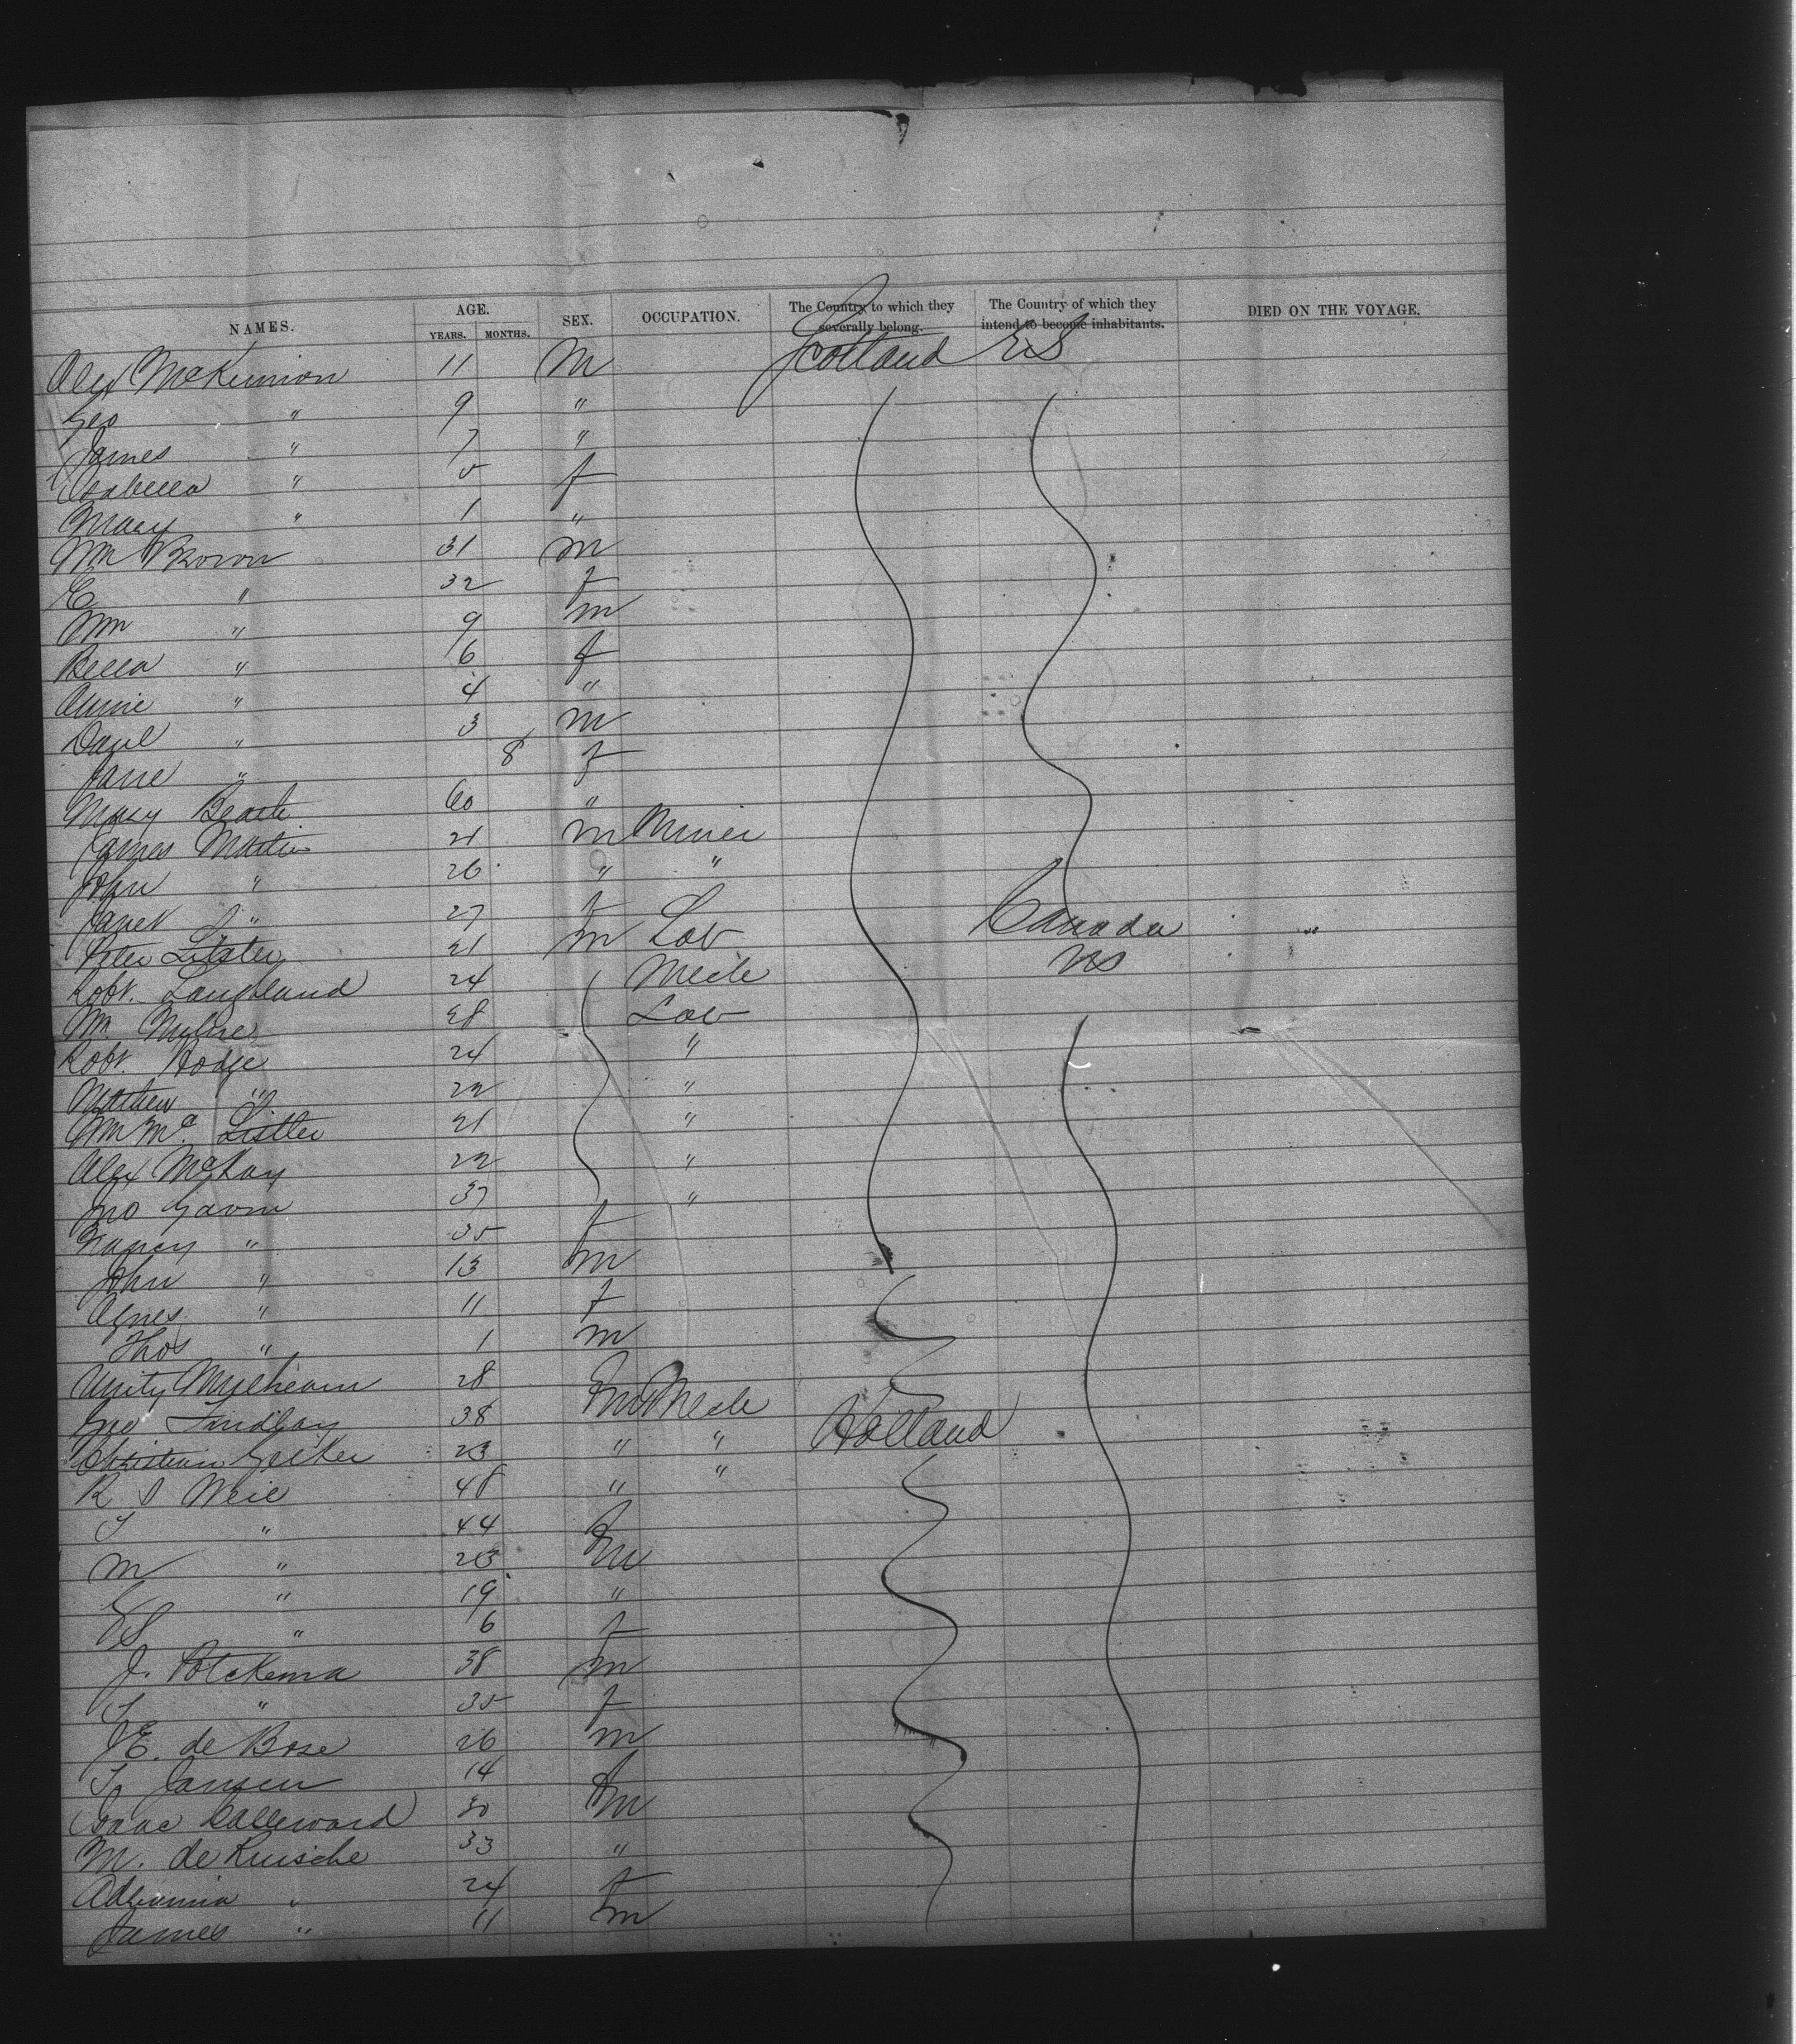 NAMES. AGE. YEARS. MONTHS. SEX. OCCUPATION. The Country to which they severally belong. The Country of which they intend to become inhabitants. DIED ON THE VOYAGE.
Alex McKinnion 11 M Scotland US
Geo " 9 "
James " 7 "
Isabella " 5 f
Mary " 1 "
Wm Brown 31 m
E " 32 f
Wm " 9 m
Bella " 6 f
Annie " 4 "
Danl " 3 m
Jane " 8 f
Mary 60 "
James Martin 21 m Miner
John " 26 " "
Janet " 27 f
Peter Lister 21 m Lab Canada
Robt. Langbland 24 Mech US
Wm. 28 Lab
Robt. Hodge 24 "
Mathew " 22 "
Wm Mc. Listler 21 "
Alex McKay 22 "
Jno Gavin 37 "
Nancy " 35 f
John " 13 m
Agnes " 11 f
Thos " 1 m
Unity 28 f
Geo Findlay 38 m Mech Holland
Christian 23 " "
R S Weie 48 " "
T " 44 f
M " 23 m
" 19 "
" 6 f
J. Potekema 38 m
T " 35 f
J E. de Bose 26 m
Jansen 14 f
Isaac Calleward 30 m
M. de Ruische 33 "
Adrianna " 24 f
James " 11 m